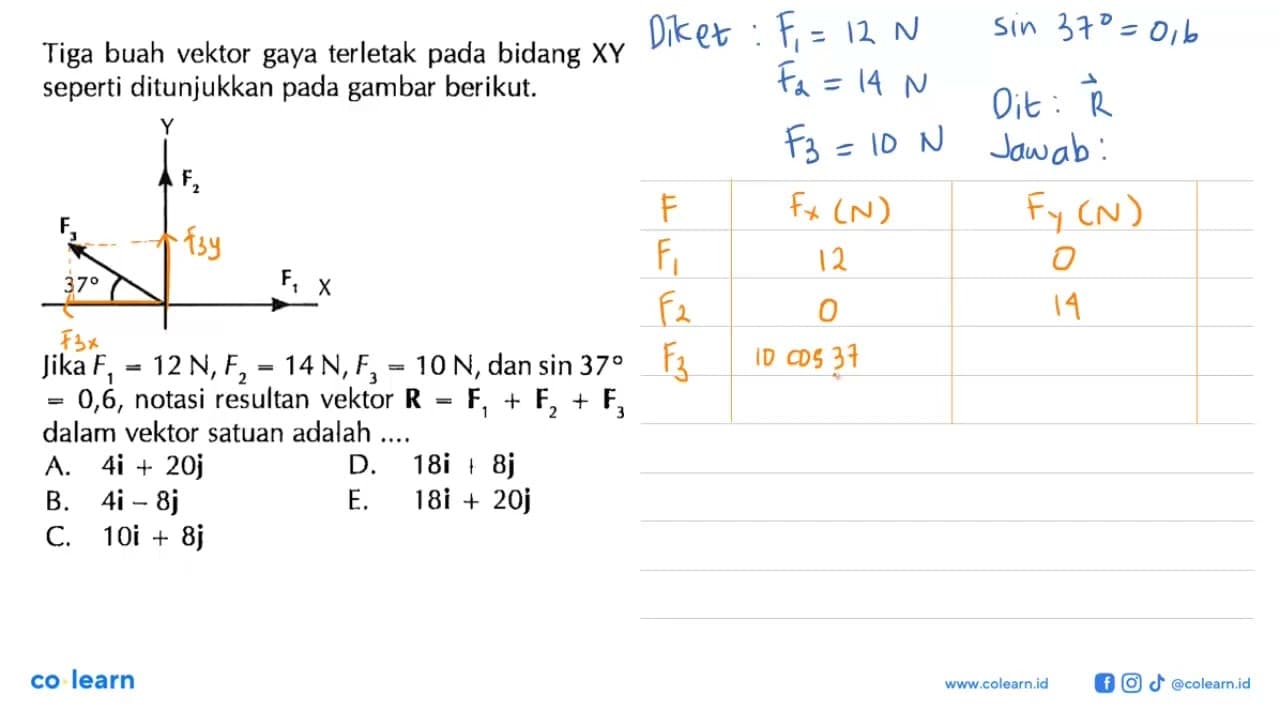 Tiga buah vektor gaya terletak pada bidang XY
seperti ditunjukkan pada gambar berikut.
Y
F₂
F₃
f3y
37°
F₁ X
F3x
Jika F₁ = 12 N, F₂ = 14 N, F₃ = 10 N, dan sin 37°
= 0,6, notasi resultan vektor R = F₁ + F₂ + F₃
dalam vektor satuan adalah ....
A. 4i + 20j
B. 4i – 8j
C. 10i + 8j
D. 18i + 8j
E. 18i + 20j
Diket : F₁ = 12 N
F₂ = 14 N
F₃ = 10 N
sin 37° = 0,6
Dit : R⃗
Jawab :
F Fx (N) Fy (N)
F₁ 12 0
F₂ 0 14
F₃ 10 cos 37
co learn
www.colearn.id
@colearn.id